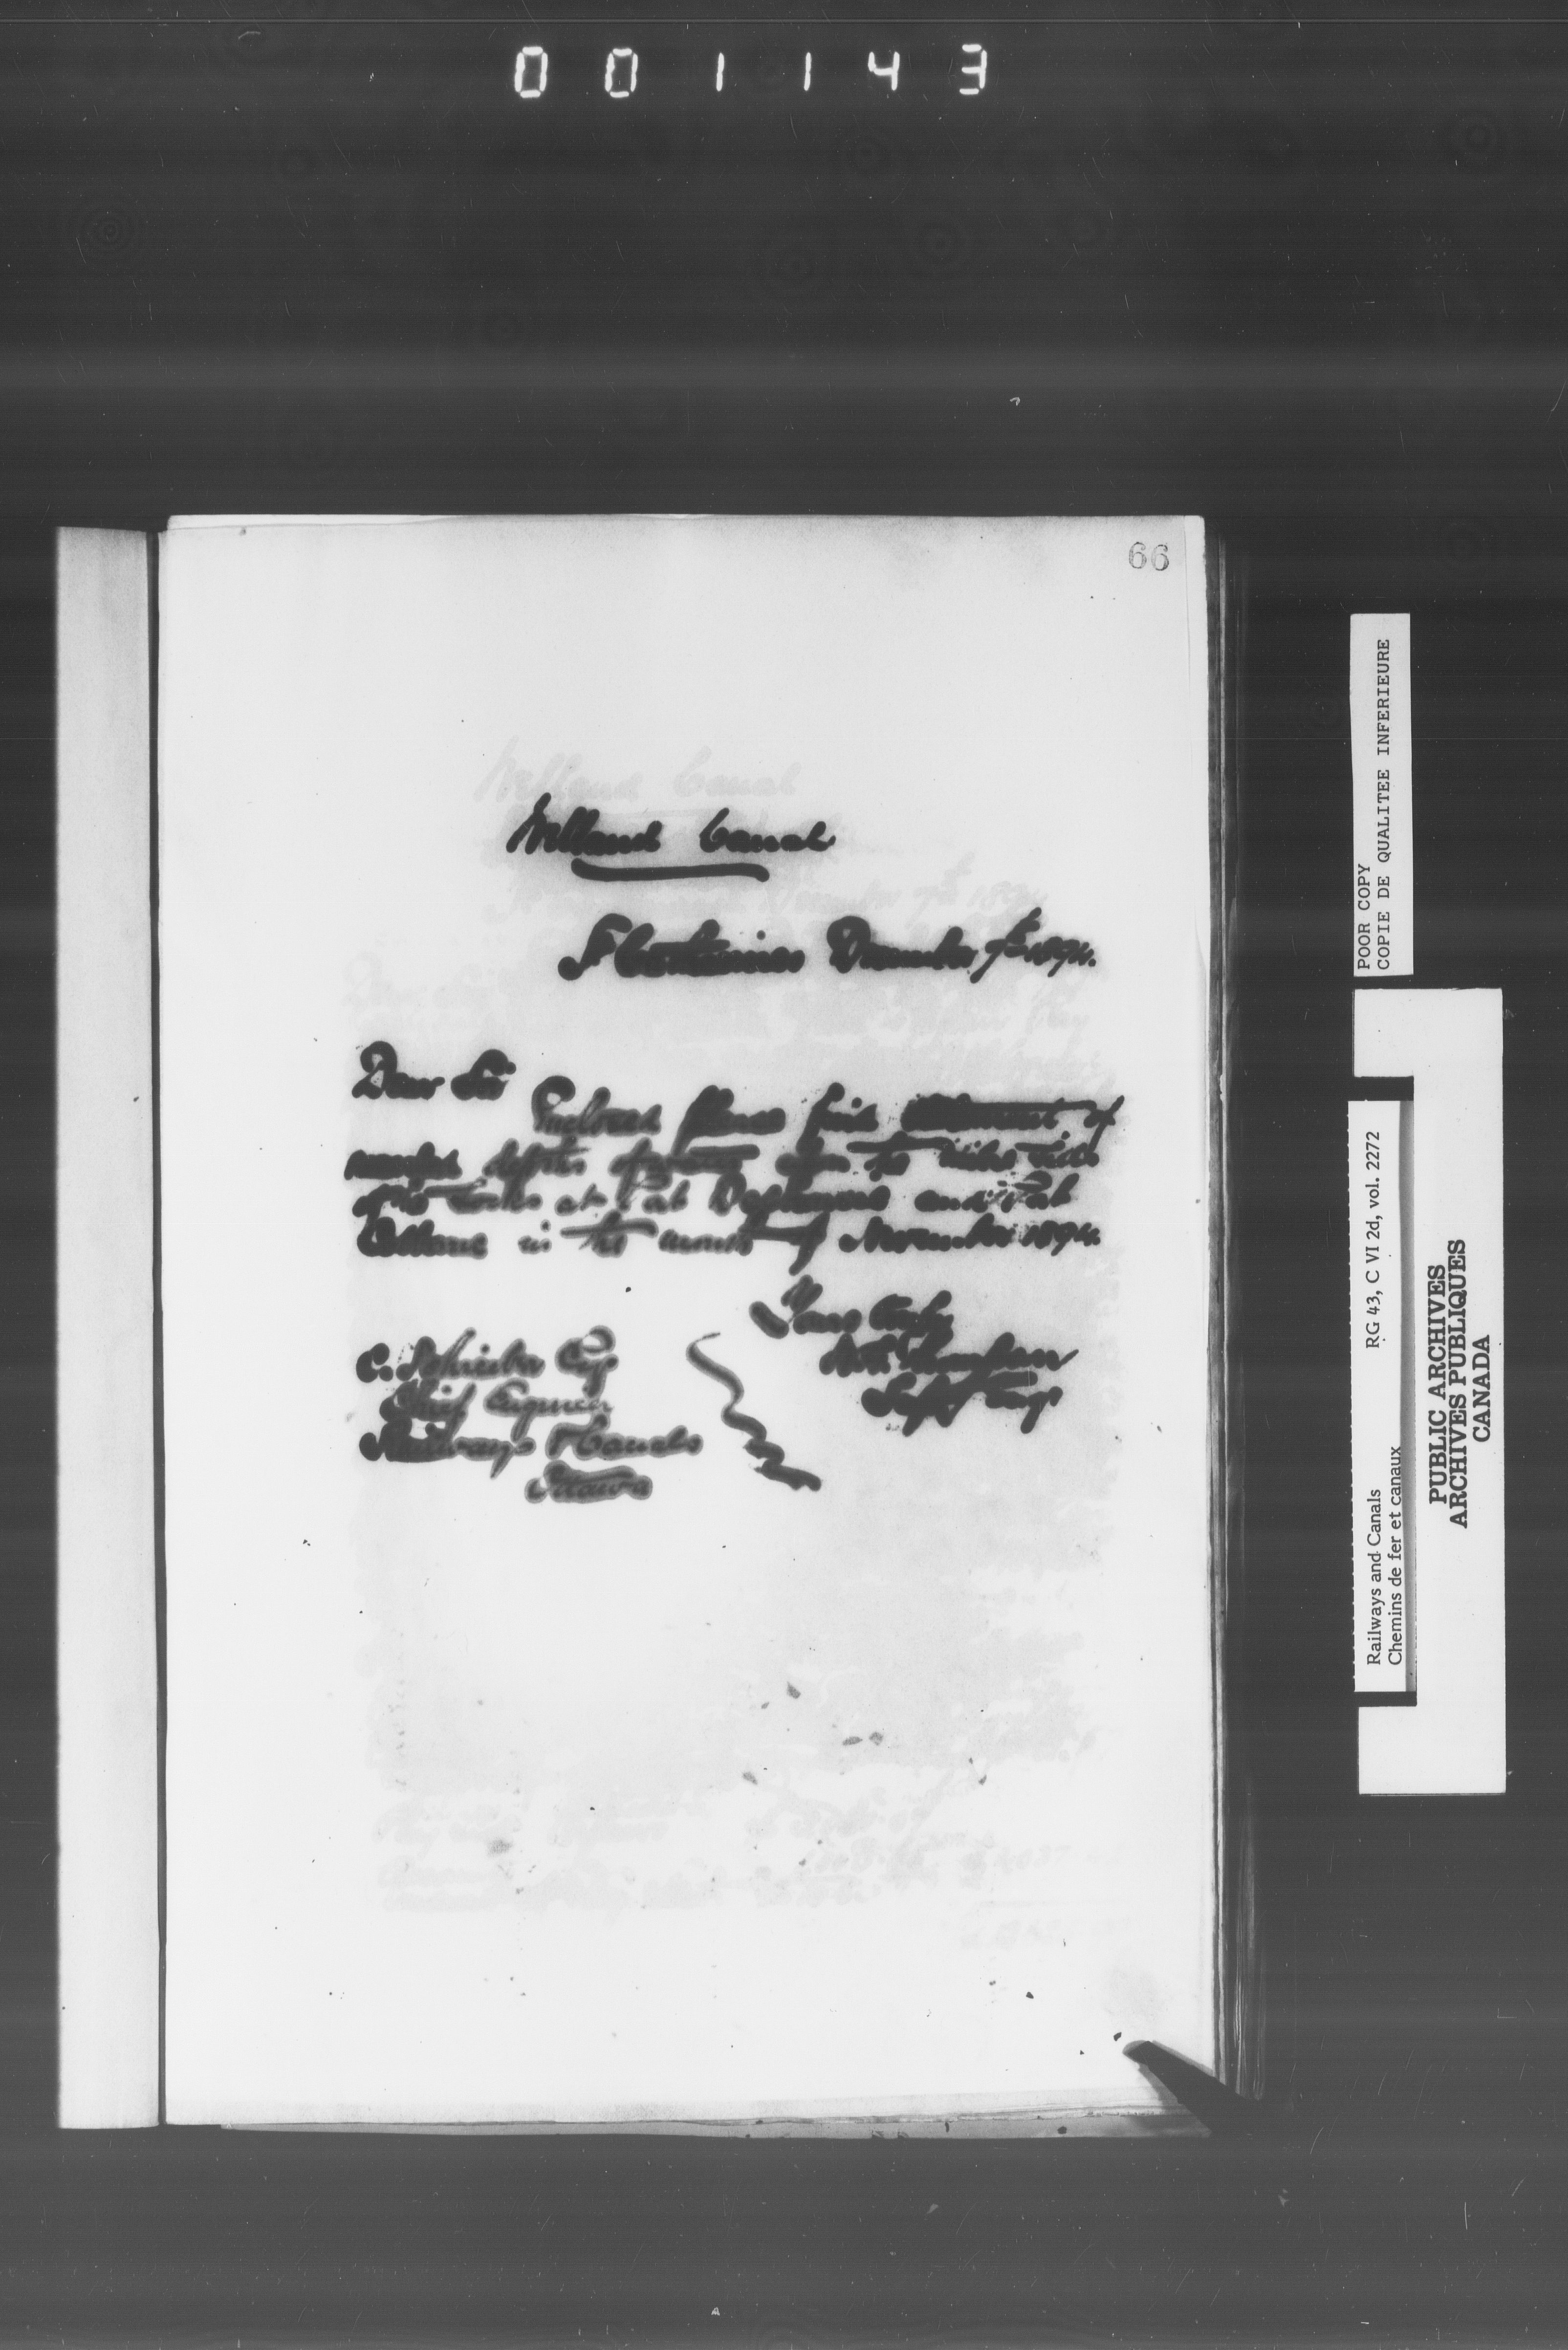 001143
66
Welland Canal
St Catharines December 7th 1894.
Dear Sir
Enclosed please find statement of
depths of water upon the mitre sills
of the Locks at Port Dalhousie and Port
Colborne in the month of November 1894.
Yours truly
W.G. Thompson
Supt Eng
C. Schreiber Esq
Chief Engineer
Railways & Canals
Ottawa
POOR COPY
COPIE DE QUALITEE INFERIEURE
Railways and Canals RG 43, C VI 2d, vol. 2272
Chemins de fer et canaux
PUBLIC ARCHIVES
ARCHIVES PUBLIQUES
CANADA